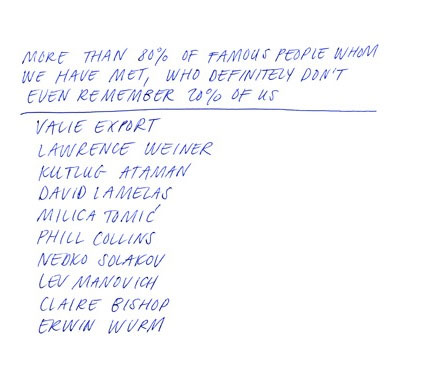 MORE THAN 80% OF FAMOUS PEOPLE WHOM
WE HAVE MET, WHO DEFINITELY DON'T
EVEN REMEMBER 20% OF US
VALIE EXPORT
LAWRENCE WEINER
KUTLUG ATAMAN
DAVID LAMELAS
MILICA TOMIĆ
PHILL COLLINS
NEDKO SOLAKOV
LEV MANOVICH
CLAIRE BISHOP
ERWIN WURM